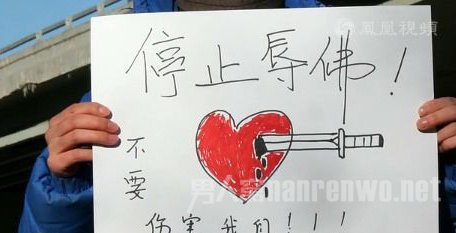 鳳凰視頻
停止辱佛！
不要
伤害我们！！！
nanrenwo.net